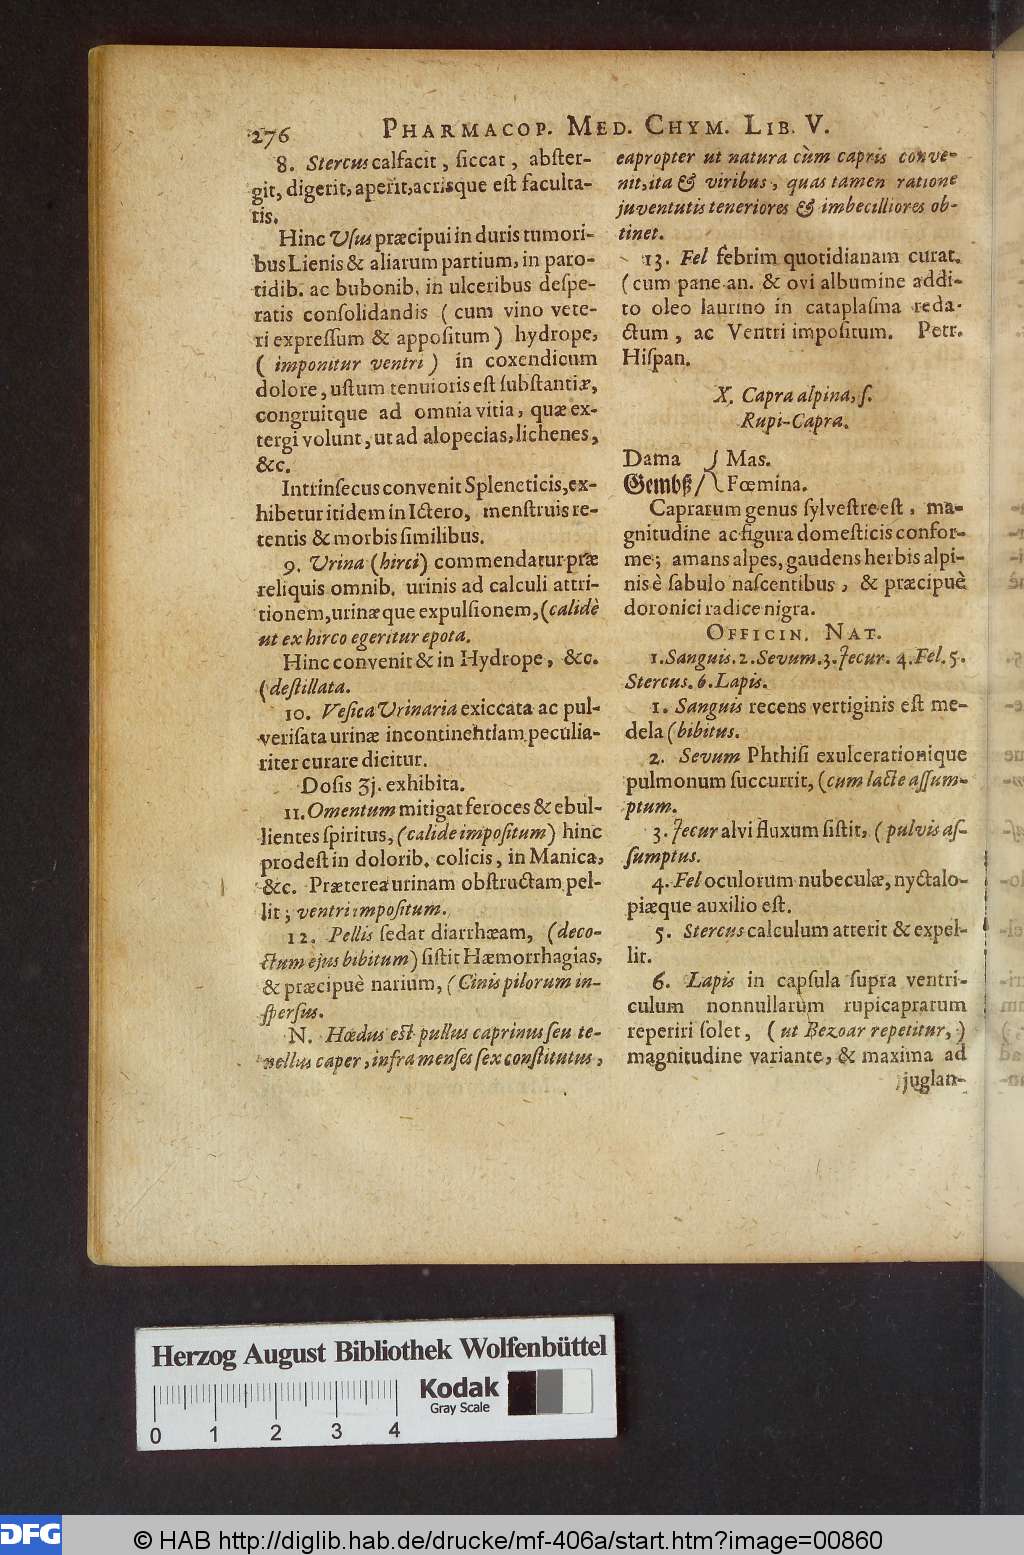 276 PHARMACOP. MED. CHYM. LIB. V.
8. Stercus calfacit, ſiccat, abſter-
git, digerit, aperit, acrisque eſt faculta-
tis.
Hinc Uſus præcipui in duris tumori-
bus Lienis & aliarum partium, in paro-
tidib. ac bubonib. in ulceribus deſpe-
ratis conſolidandis (cum vino vete-
ri expreſſum & appoſitum) hydrope,
(imponitur ventri) in coxendicum
dolore, uſtum tenuioris eſt ſubſtantiæ,
congruitque ad omnia vitia, quæ ex-
tergi volunt, ut ad alopecias, lichenes,
&c.
Intrinſecus convenit Spleneticis, ex-
hibetur itidem in Ictero, menſtruis re-
tentis & morbis ſimilibus.
9. Urina (hirci) commendatur præ
reliquis omnib. urinis ad calculi attri-
tionem, urinæque expulſionem, (calidè
ut ex hirco egeritur epota.
Hinc convenit & in Hydrope, &c.
(deſtillata.
10. Veſica Urinaria exiccata ac pul-
veriſata urinæ incontinentiam peculia-
riter curare dicitur.
Doſis ʒj. exhibita.
11. Omentum mitigat feroces & ebul-
lientes ſpiritus, (calide impoſitum) hinc
prodeſt in dolorib. colicis, in Manica,
&c. Præterea urinam obſtructam pel-
lit; ventri impoſitum.
12. Pellis ſedat diarrhæam, (deco-
ctum ejus bibitum) ſiſtit Hæmorrhagias,
& præcipuè narium, (Cinis pilorum in-
ſperſus.
N. Hœdus eſt pullus caprinus ſeu te-
nellus caper, infra menſes ſex conſtitutus,
eapropter ut natura cùm capris conve-
nit, ita & viribus, quas tamen ratione
juventutis teneriores & imbecilliores ob-
tinet.
13. Fel febrim quotidianam curat.
(cum pane an. & ovi albumine addi-
to oleo laurino in cataplaſma reda-
ctum, ac Ventri impoſitum. Petr.
Hiſpan.
X. Capra alpina, ſ.
Rupi-Capra.
Dama Mas.
Gembß / Fœmina.
Caprarum genus ſylveſtre eſt, ma-
gnitudine ac figura domeſticis confor-
me; amans alpes, gaudens herbis alpi-
nis è ſabulo naſcentibus, & præcipuè
doronici radice nigra.
OFFICIN. NAT.
1. Sanguis. 2. Sevum. 3. Jecur. 4. Fel. 5.
Stercus. 6. Lapis.
1. Sanguis recens vertiginis eſt me-
dela (bibitus.
2. Sevum Phthiſi exulcerationique
pulmonum ſuccurrit, (cum lacte aſſum-
ptum.
3. Jecur alvi fluxum ſiſtit, (pulvis aſ-
ſumptus.
4. Fel oculorum nubeculæ, nyctalo-
piæque auxilio eſt.
5. Stercus calculum atterit & expel-
lit.
6. Lapis in capſula ſupra ventri-
culum nonnullarum rupicaprarum
reperiri ſolet, (ut Bezoar repetitur,)
magnitudine variante, & maxima ad
juglan-
Herzog August Bibliothek Wolfenbüttel
Kodak
Gray Scale
0 1 2 3 4
DFG © HAB http://diglib.hab.de/drucke/mf-406a/start.htm?image=00860